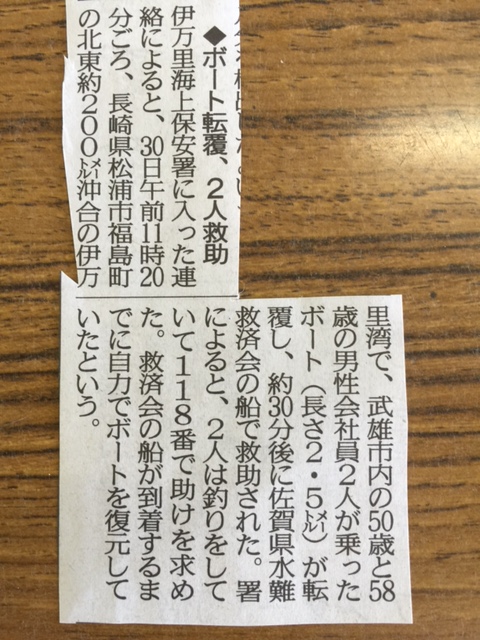 ◆ボート転覆、2人救助
伊万里海上保安署に入った連
絡によると、30日午前11時20
分ごろ、長崎県松浦市福島町
の北東約200㍍沖合の伊万
里湾で、武雄市内の50歳と58
歳の男性会社員2人が乗った
ボート（長さ2・5㍍）が転
覆し、約30分後に佐賀県水難
救済会の船で救助された。署
によると、2人は釣りをして
いて118番で助けを求め
た。救済会の船が到着するま
でに自力でボートを復元して
いたという。